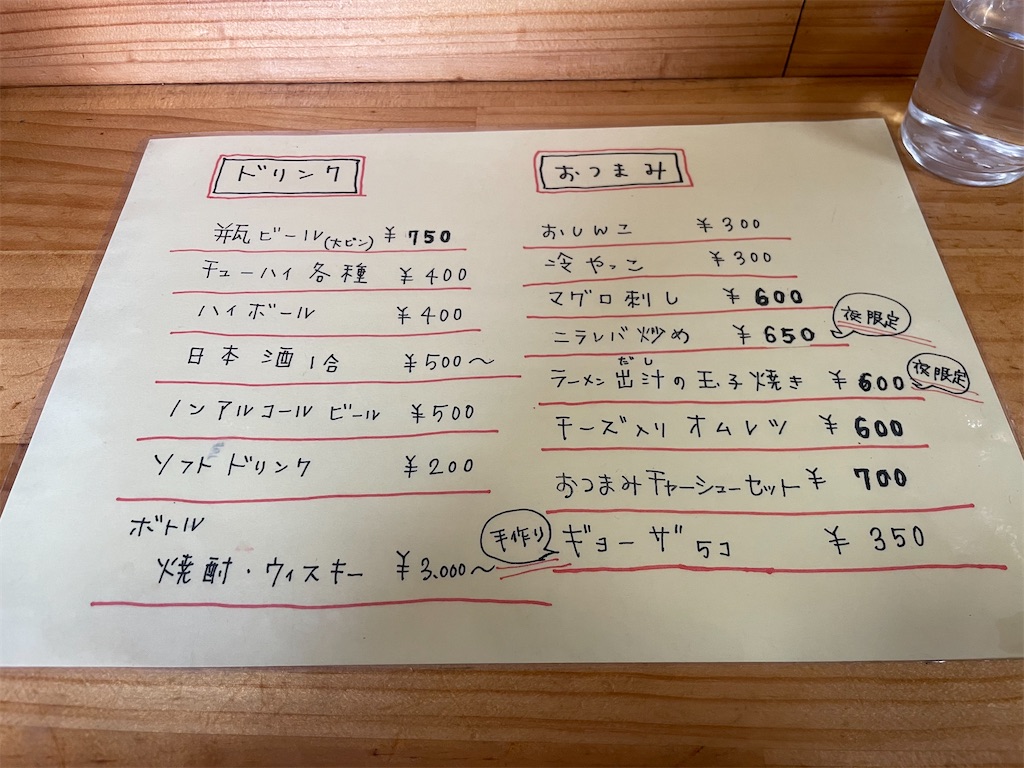 ドリンク
瓶ビール(大ビン) ¥750
チューハイ各種 ¥400
ハイボール ¥400
日本酒1合 ¥500〜
ノンアルコールビール ¥500
ソフトドリンク ¥200
ボトル
焼酎・ウィスキー ¥3.000〜
おつまみ
おしんこ ¥300
冷やっこ ¥300
マグロ刺し ¥600
ニラレバ炒め ¥650
夜限定
だし
ラーメン出汁の玉子焼き ¥600
夜限定
チーズ入りオムレツ ¥600
おつまみチャーシューセット ¥700
手作り
ギョーザ 5コ ¥350